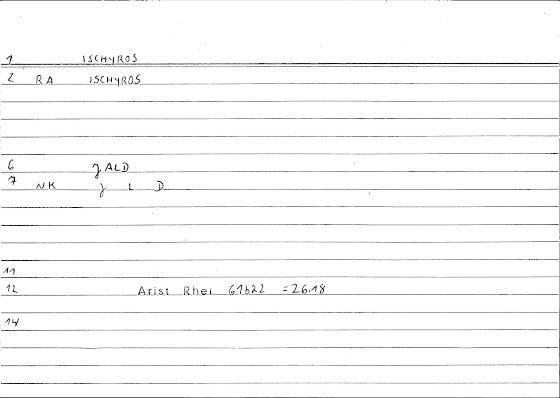 1 ISCHYROS
2 RA ISCHYROS
6 JALD
7 NK J L D
11
12 Arist Rhei 61b22 =26.18
14